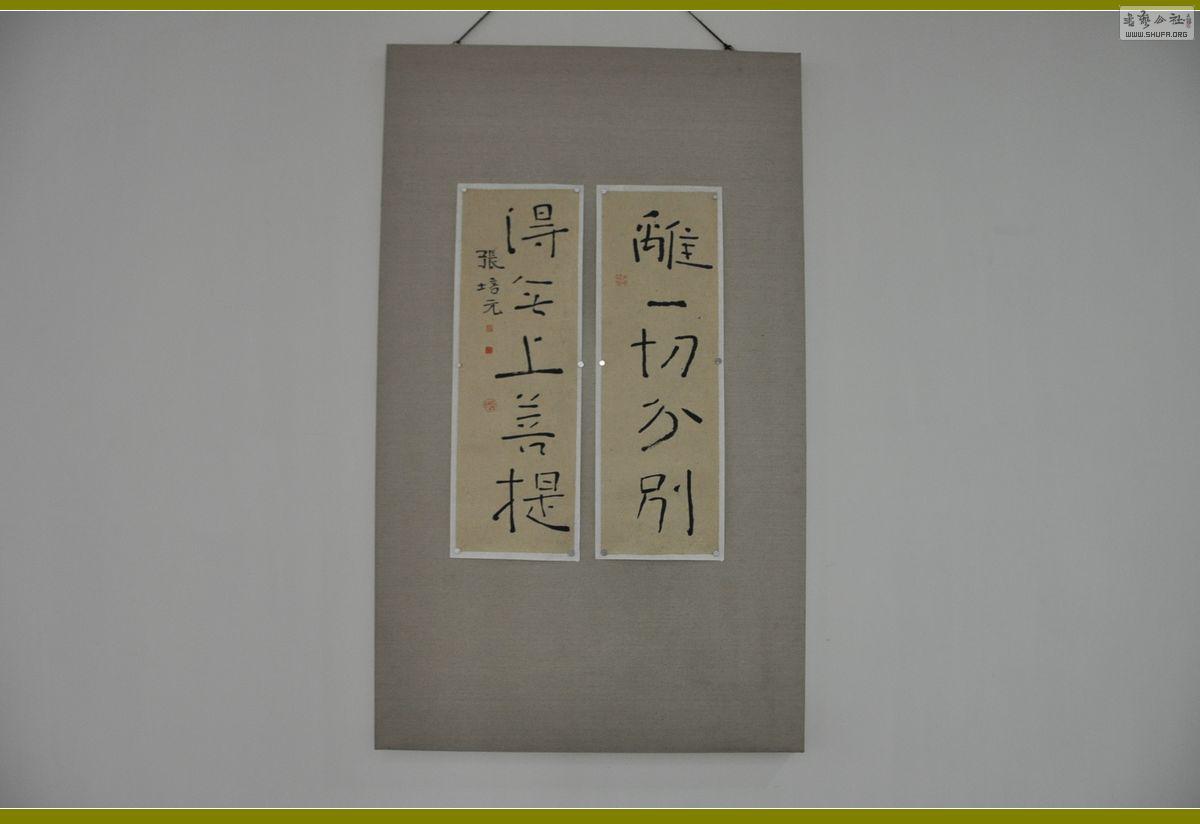 離一切分別
得無上菩提
張培元
书艺公社
WWW.SHUFA.ORG